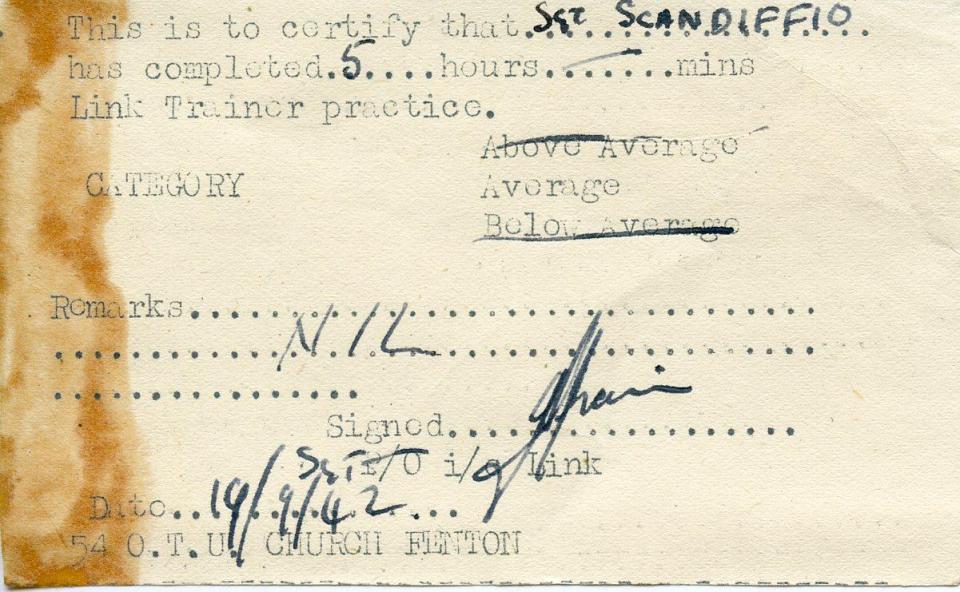 This is to certify that..Sgt SCANDIFFIO..
has completed.5....hours.—.....mins
Link Trainer practice.
Above Average
CATEGORY Average
Below Average
Remarks........................................
..............NIL........................
..................
Signed........................
Sgt P/O i/c Link
Date..19/9/42...
54 O.T.U. CHURCH FENTON